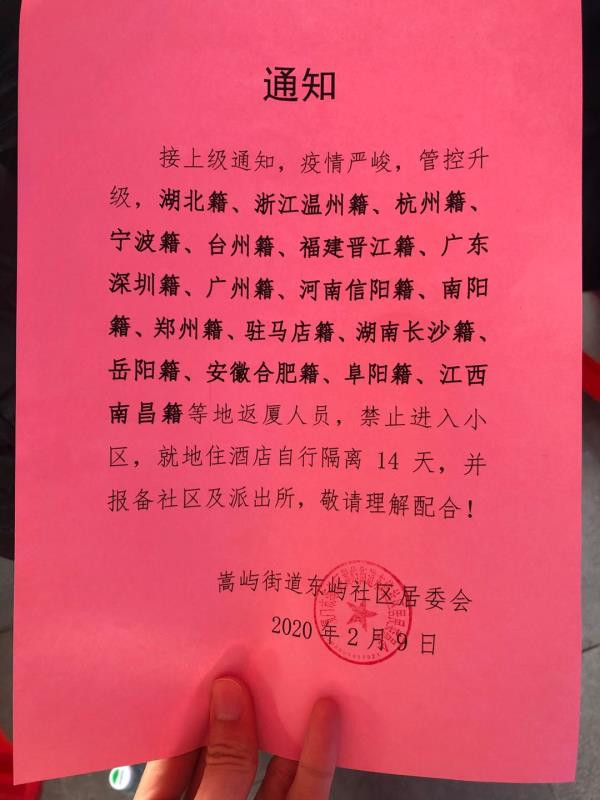 通知
接上级通知，疫情严峻，管控升
级，湖北籍、浙江温州籍、杭州籍、
宁波籍、台州籍、福建晋江籍、广东
深圳籍、广州籍、河南信阳籍、南阳
籍、郑州籍、驻马店籍、湖南长沙籍、
岳阳籍、安徽合肥籍、阜阳籍、江西
南昌籍等地返厦人员，禁止进入小
区，就地住酒店自行隔离 14 天，并
报备社区及派出所，敬请理解配合！
嵩屿街道东屿社区居委会
2020 年 2 月 9 日